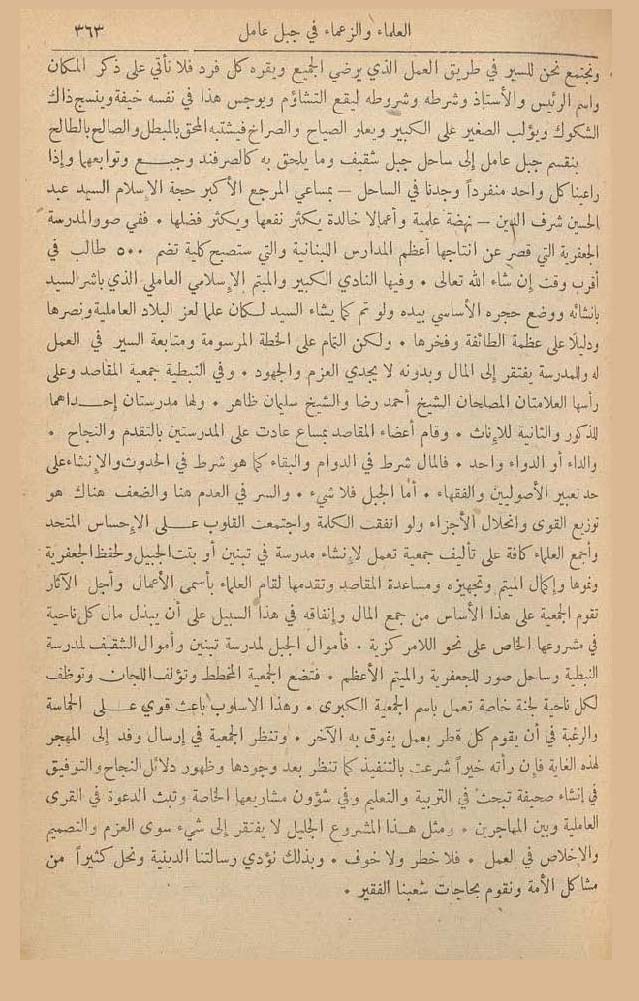 العلماء والزعماء في جبل عامل ٣٦٣
ونجتمع نحن للسير في طريق العمل الذي يرضي الجميع ويقره كل فرد فلا نأتي على ذكر المكان
واسم الرئيس والأستاذ وشرطه وشروطه ليقع التشاؤم ويوجس هذا في نفسه خيفة وينسج ذاك
الشكوك ويؤلب الصغير على الكبير ويعار الصباح والصراخ فيشتبه المحق بالمبطل والصالح بالطالح
ينقسم جبل عامل إلى ساحل جبل شقيف وما يلحق به كالصرفند وجبع وتوابعها وإذا
راعينا كل واحد منفرداً وجدنا في الساحل – بمساعي المرجع الأكبر حجة الإسلام السيد عبد
الحسين شرف الدين – نهضة علمية وأعمالا خالدة يكثر نفعها ويكثر فضلها . ففي صور المدرسة
الجعفرية التي قصر عن انتاجها أعظم المدارس اللبنانية والتي ستصبح كلية تضم ٥٠٠ طالب في
أقرب وقت إن شاء الله تعالى . وفيها النادي الكبير والميتم الإسلامي العاملي الذي باشر السيد
بانشائه ووضع حجره الأساسي بيده ولو تم كما يشاء السيد لكان علما لعز البلاد العاملية ونصرها
ودليلا على عظمة الطائفة وفخرها . ولكن التمام على الخطة المرسومة ومتابعة السير في العمل
له وللمدرسة يفتقر إلى المال وبدونه لا يجدي العزم والجهود . وفي النبطية جمعية المقاصد وعلى
رأسها العلامتان المصلحان الشيخ أحمد رضا والشيخ سليمان ظاهر . ولها مدرستان إحداهما
للذكور والثانية للإناث . وقام أعضاء المقاصد بمساع عادت على المدرستين بالتقدم والنجاح .
والداء أو الدواء واحد . فالمال شرط في الدوام والبقاء كما هو شرط في الحدوث والإنشاء على
حد تعبير الأصوليين والفقهاء . أما الجبل فلا شيء . والسر في العدم هنا والضعف هناك هو
توزيع القوى وانحلال الأجزاء ولو اتفقت الكلمة واجتمعت القلوب على الإحساس المتحد
وأجمع العلماء كافة على تأليف جمعية تعمل لإنشاء مدرسة في تبنين أو بنت الجبيل ولحفظ الجعفرية
ونموها وإكمال الميتم وتجهيزه ومساعدة المقاصد وتقدمها لقام العلماء بأسمى الأعمال وأجل الآثار
تقوم الجمعية على هذا الأساس من جمع المال وإنفاقه في هذا السبيل على أن يبذل مال كل ناحية
في مشروعها الخاص على نحو اللامركزية . فأموال الجبل لمدرسة تبنين وأموال الشقيف لمدرسة
النبطية وساحل صور للجعفرية والميتم الأعظم . فتضع الجمعية المخطط وتؤلف اللجان وتوظف
لكل ناحية لجنة خاصة تعمل باسم الجمعية الكبرى . وهذا الاسلوب باعث قوي على الحماسة
والرغبة في أن يقوم كل قطر بعمل يفوق به الآخر . وتنظر الجمعية في إرسال وفد إلى المهجر
لهذه الغاية فإن رأته خيراً شرعت بالتنفيذ كما تنظر بعد وجودها وظهور دلائل النجاح والتوفيق
في إنشاء صحيفة تبحث في التربية والتعليم وفي شؤون مشاريعها الخاصة وتبث الدعوة في القرى
العاملية وبين المهاجرين . ومثل هذا المشروع الجليل لا يفتقر إلى شيء سوى العزم والتصميم
والإخلاص في العمل . فلا خطر ولا خوف . وبذلك نؤدي رسالتنا الدينية ونحل كثيراً من
مشاكل الأمة ونقوم بحاجات شعبنا الفقير .